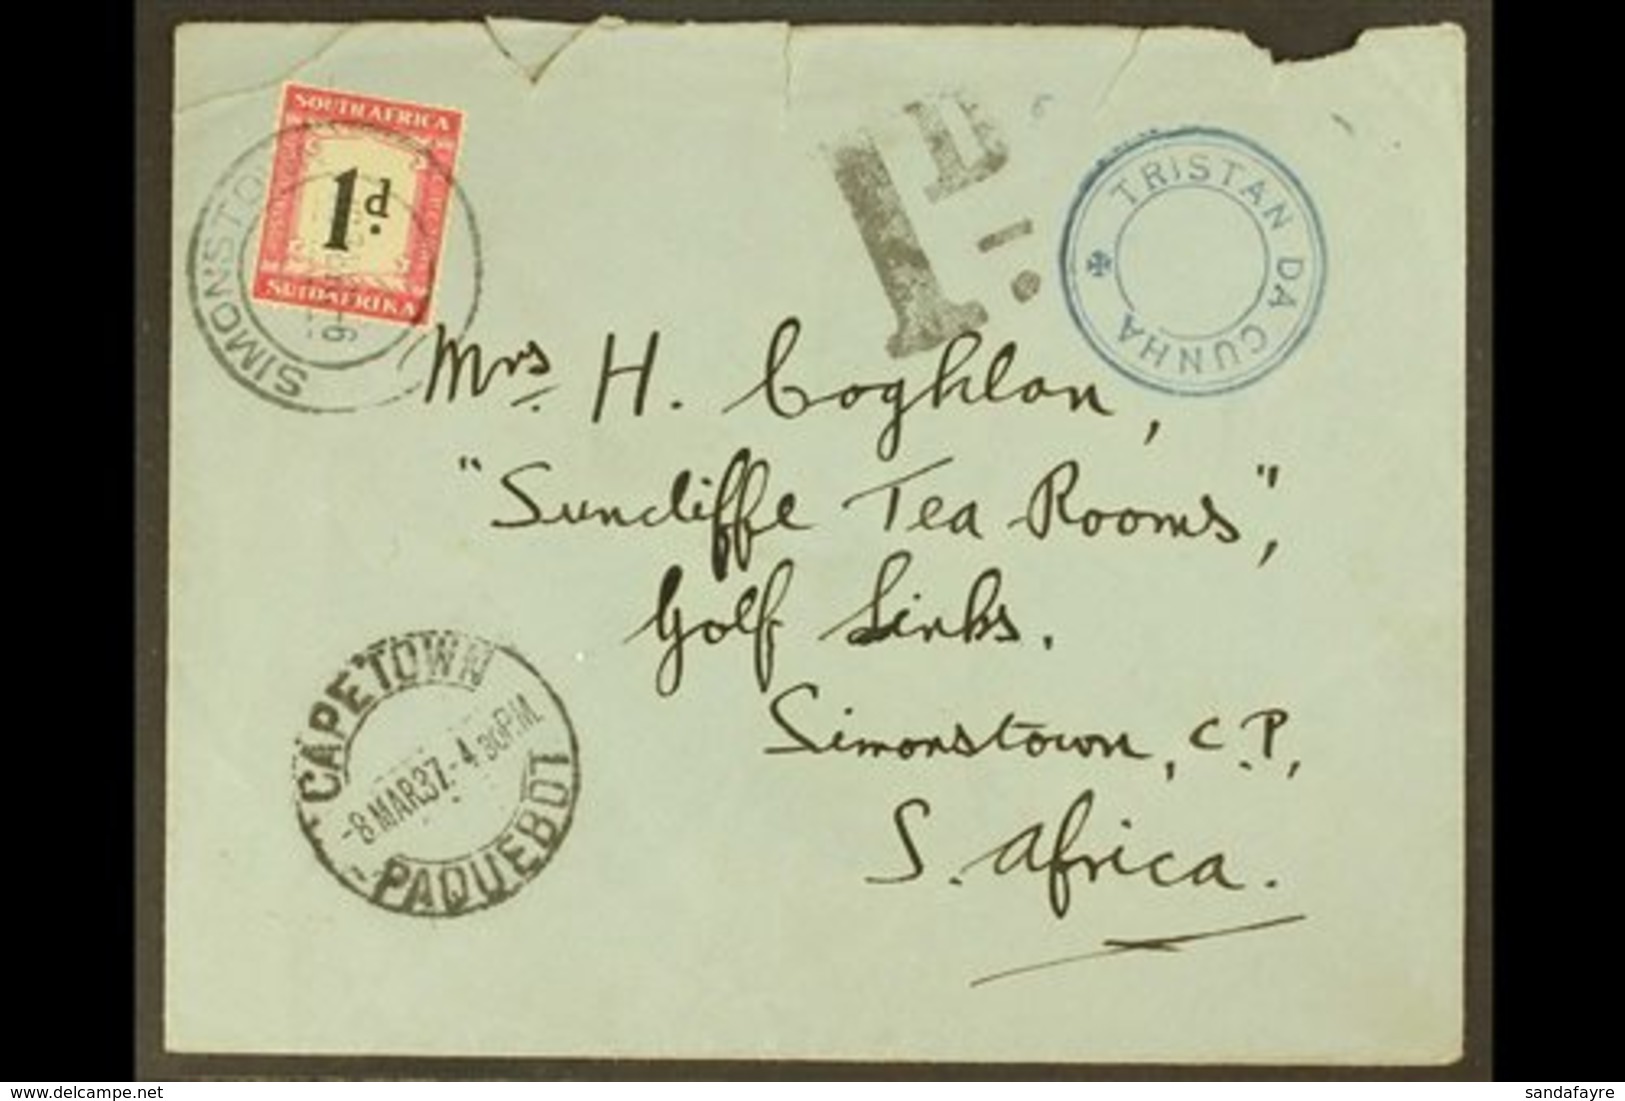 SOUTH AFRICA
1d.
SUIDAFRIKA
SIMONSTO
1D.
TRISTAN DA CUNHA
Mrs. H. Coghlan,
"Suncliffe Tea Rooms",
Golf Links.
Simonstown, C.P.,
S. Africa.
CAPETOWN
-8 MAR 37.-4 30 P.M.
PAQUEBOT
sandafayre